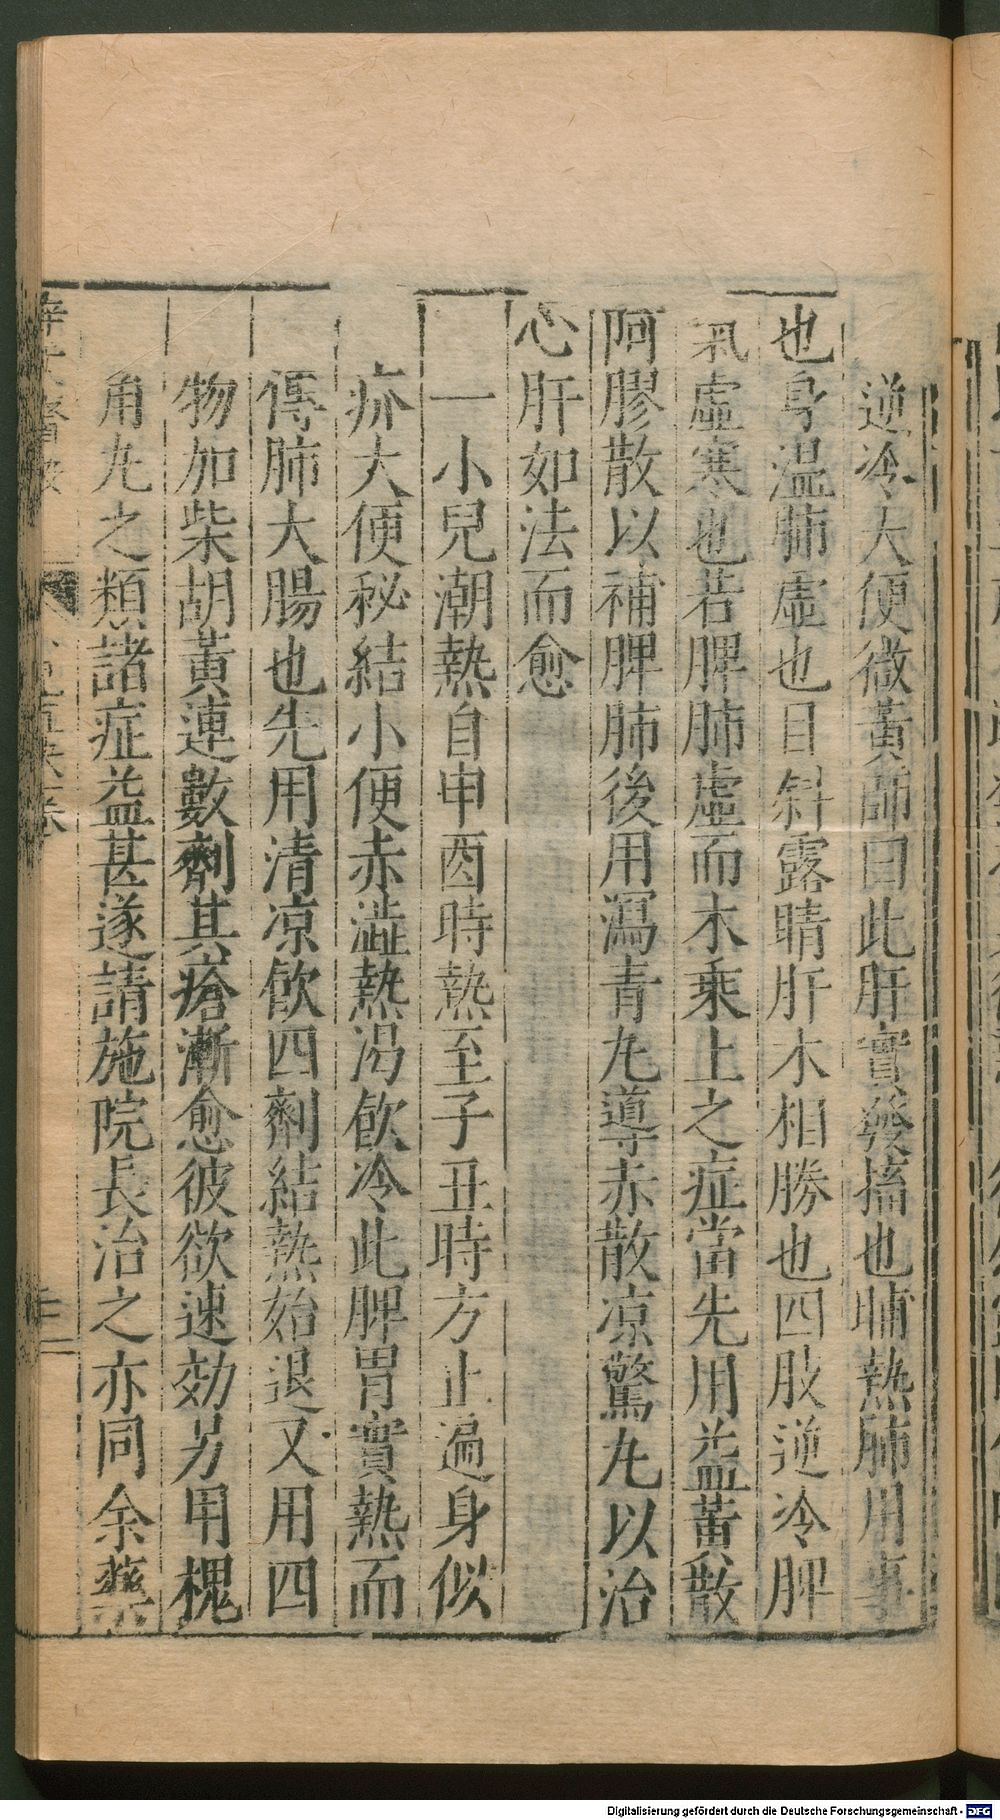 逆冷大便微黃師曰此肝實發搐也晡熱肺用事
也身溫肺虛也目斜露睛肝木相勝也四肢逆冷脾
氣虛寒也若脾肺虛而木乘上之症當先用益黃散
阿膠散以補脾肺後用瀉青丸導赤散凉驚丸以治
心肝如法而愈
一小兒潮熱自申酉時熱至子丑時方止遍身似
疥大便秘結小便赤澁熱渴飲冷此脾胃實熱而
傳肺大腸也先用清凉飲四劑結熱始退又用四
物加柴胡黃連數劑其瘡漸愈彼欲速効另用槐
角丸之類諸症益甚遂請施院長治之亦同余藥
Digitalisierung gefördert durch die Deutsche Forschungsgemeinschaft - DFG